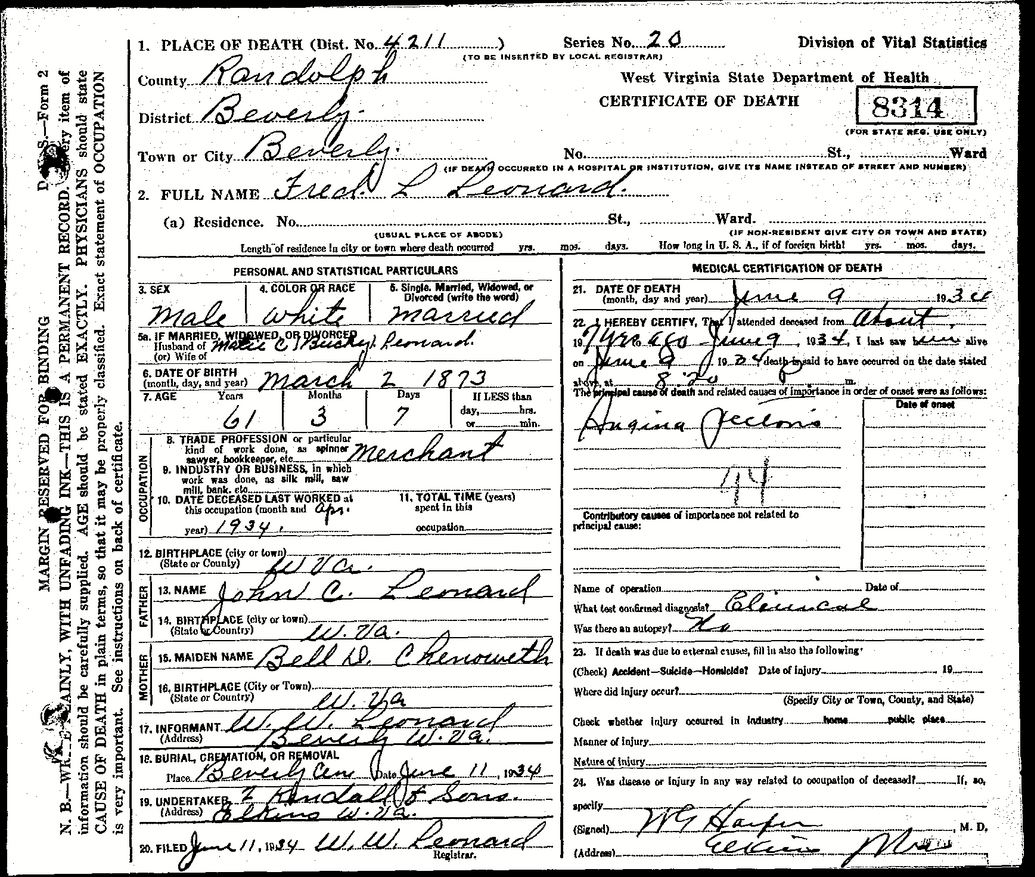 1. PLACE OF DEATH (Dist. No. 4211) Series No. 20 Division of Vital Statistics
(TO BE INSERTED BY LOCAL REGISTRAR)
County Randolph West Virginia State Department of Health
District Beverly. CERTIFICATE OF DEATH 8314
(FOR STATE REG. USE ONLY)
Town or City Beverly. No. St., Ward
(IF DEATH OCCURRED IN A HOSPITAL OR INSTITUTION, GIVE ITS NAME INSTEAD OF STREET AND NUMBER)
2. FULL NAME Fred L Leonard.
(a) Residence. No. St., Ward.
(USUAL PLACE OF ABODE) (IF NON-RESIDENT GIVE CITY OR TOWN AND STATE)
Length of residence in city or town where death occurred yrs. mos. days. How long in U. S. A., if of foreign birth? yrs. mos. days.
PERSONAL AND STATISTICAL PARTICULARS
3. SEX 4. COLOR OR RACE 5. Single. Married, Widowed, or Divorced (write the word)
Male white married
5a. IF MARRIED, WIDOWED, OR DIVORCED
Husband of C Bucky Leonard.
(or) Wife of
6. DATE OF BIRTH
(month, day, and year) March 2 1873
7. AGE Years Months Days If LESS than
61 3 7 day, hrs.
or min.
OCCUPATION
8. TRADE PROFESSION or particular
kind of work done, as spinner
sawyer, bookkeeper, etc. Merchant
9. INDUSTRY OR BUSINESS, in which
work was done, as silk mill, saw
mill, bank, etc.
10. DATE DECEASED LAST WORKED at 11. TOTAL TIME (years)
this occupation (month and Apr. spent in this
year) 1934. occupation
12. BIRTHPLACE (city or town)
(State or County) W Va.
FATHER
13. NAME John C. Leonard
14. BIRTHPLACE (city or town)
(State or Country) W. Va.
MOTHER
15. MAIDEN NAME Bell D. Chenoweth
16. BIRTHPLACE (City or Town)
(State or Country) W. Va
17. INFORMANT W. W. Leonard
(Address) Beverly W. Va.
18. BURIAL, CREMATION, OR REMOVAL
Place Beverly Cem Date June 11, 1934
19. UNDERTAKER Kendall & Sons.
(Address) Elkins W. Va.
20. FILED June 11, 1934 W. W. Leonard
Registrar.
MEDICAL CERTIFICATION OF DEATH
21. DATE OF DEATH
(month, day and year) June 9 1934
22. I HEREBY CERTIFY, That I attended deceased from About
19 yrs ago June 9, 1934, I last saw him alive
on June 9 1934 death is said to have occurred on the date stated
above, at 8 20 P m.
The principal cause of death and related causes of importance in order of onset were as follows:
Date of onset
Angina Pectoris
94
Contributory causes of importance not related to
principal cause:
Name of operation Date of
What test confirmed diagnosis? Clinical
Was there an autopsy? No
23. If death was due to external causes, fill in also the following:
(Check) Accident—Suicide—Homicide? Date of injury 19
Where did injury occur?
(Specify City or Town, County, and State)
Check whether injury occurred in industry home public place
Manner of injury
Nature of injury
24. Was disease or injury in any way related to occupation of deceased? If, so,
specify
(Signed) W G Harper M. D,
(Address) Elkins
MARGIN RESERVED FOR BINDING S.—Form 2
N. B.—WRITE PLAINLY, WITH UNFADING INK—THIS IS A PERMANENT RECORD. Every item of
information should be carefully supplied. AGE should be stated EXACTLY. PHYSICIANS should state
CAUSE OF DEATH in plain terms, so that it may be properly classified. Exact statement of OCCUPATION
is very important. See instructions on back of certificate.